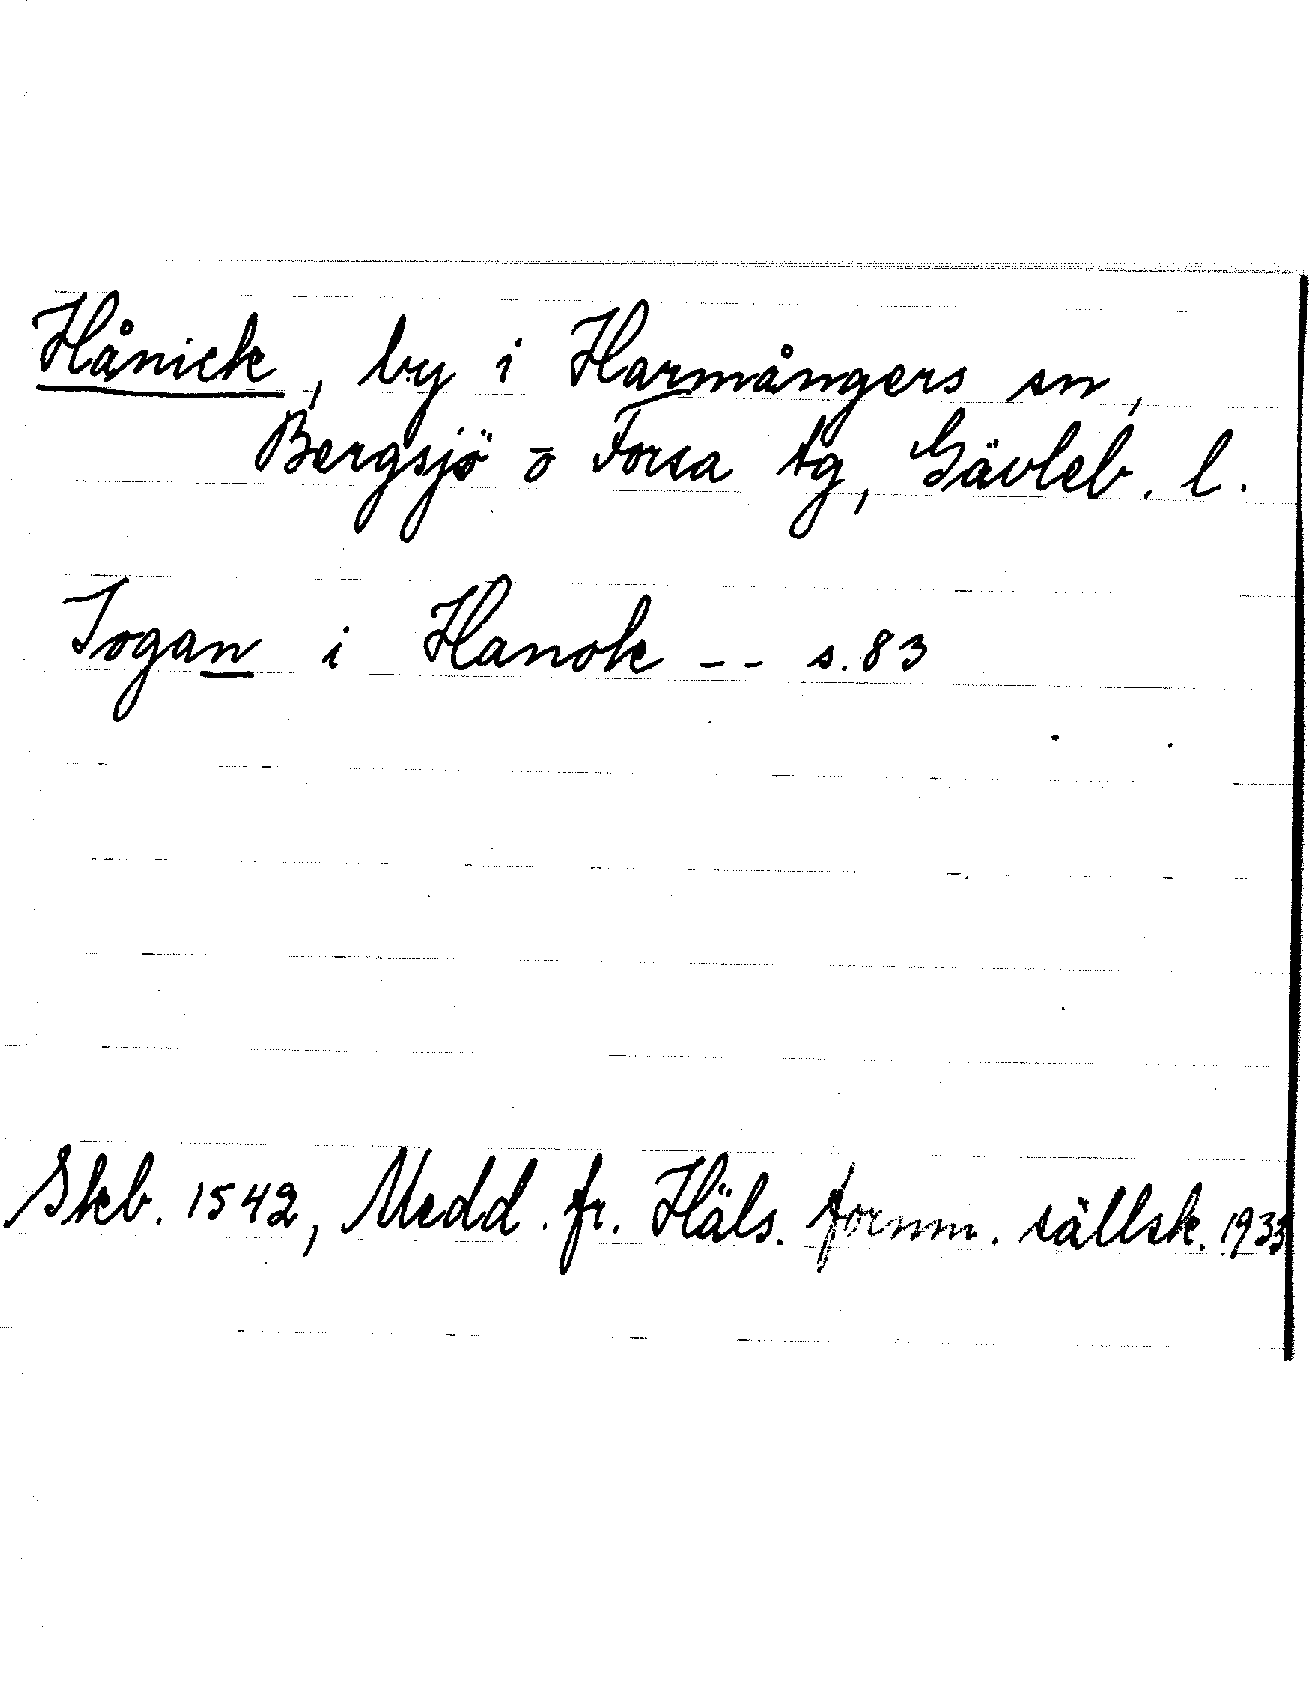 Hånick, by i Harmångers sn,
Bergsjö o Forsa tg, Gävleb. l.
Jogan i Hanok -- s. 83
Skb. 1542, Medd. fr. Häls. fornm. sällsk. 1933